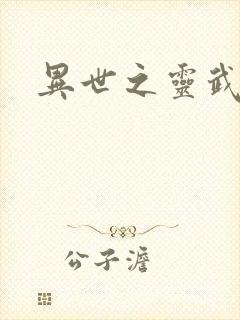 異世之靈武
公子澹